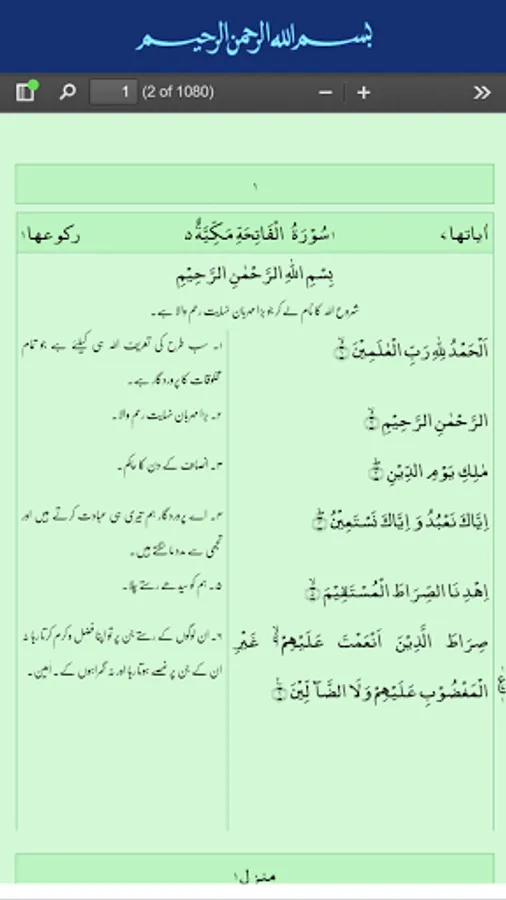 بسم الله الرحمن الرحیم
1 (2 of 1080)
١
اٰیاتھا ٧ ١ سُوْرَةُ الْفَاتِحَةِ مَكِّيَّةٌ ٥ رکوعھا ١
بِسْمِ اللّٰهِ الرَّحْمٰنِ الرَّحِيْمِ
شروع اللہ کا نام لے کر جو بڑا مہربان نہایت رحم والا ہے۔
اَلْحَمْدُ لِلّٰهِ رَبِّ الْعٰلَمِيْنَ ۙ﴿۱﴾
۱۔ سب طرح کی تعریف اللہ ہی کیلئے ہے جو تمام
مخلوقات کا پروردگار ہے۔
الرَّحْمٰنِ الرَّحِيْمِ ۙ﴿۲﴾
۲۔ بڑا مہربان نہایت رحم والا۔
مٰلِكِ يَوْمِ الدِّيْنِ ؕ﴿۳﴾
۳۔ انصاف کے دن کا حاکم۔
اِيَّاكَ نَعْبُدُ وَ اِيَّاكَ نَسْتَعِيْنُ ؕ﴿۴﴾
۴۔ اے پروردگار ہم تیری ہی عبادت کرتے ہیں اور
تجھی سے مدد مانگتے ہیں۔
اِهْدِنَا الصِّرَاطَ الْمُسْتَقِيْمَ ۙ﴿۵﴾
۵۔ ہم کو سیدھے رستے چلا۔
صِرَاطَ الَّذِيْنَ اَنْعَمْتَ عَلَيْهِمْ ۙ۬ غَيْرِ
الْمَغْضُوْبِ عَلَيْهِمْ وَلَا الضَّآلِّيْنَ ﴿۶﴾
۶۔ ان لوگوں کے رستے جن پر تو اپنا فضل و کرم کرتا رہا نہ
ان کے جن پر غصے ہوتا رہا اور نہ گمراہوں کے۔ امین۔
ع
منزل ١